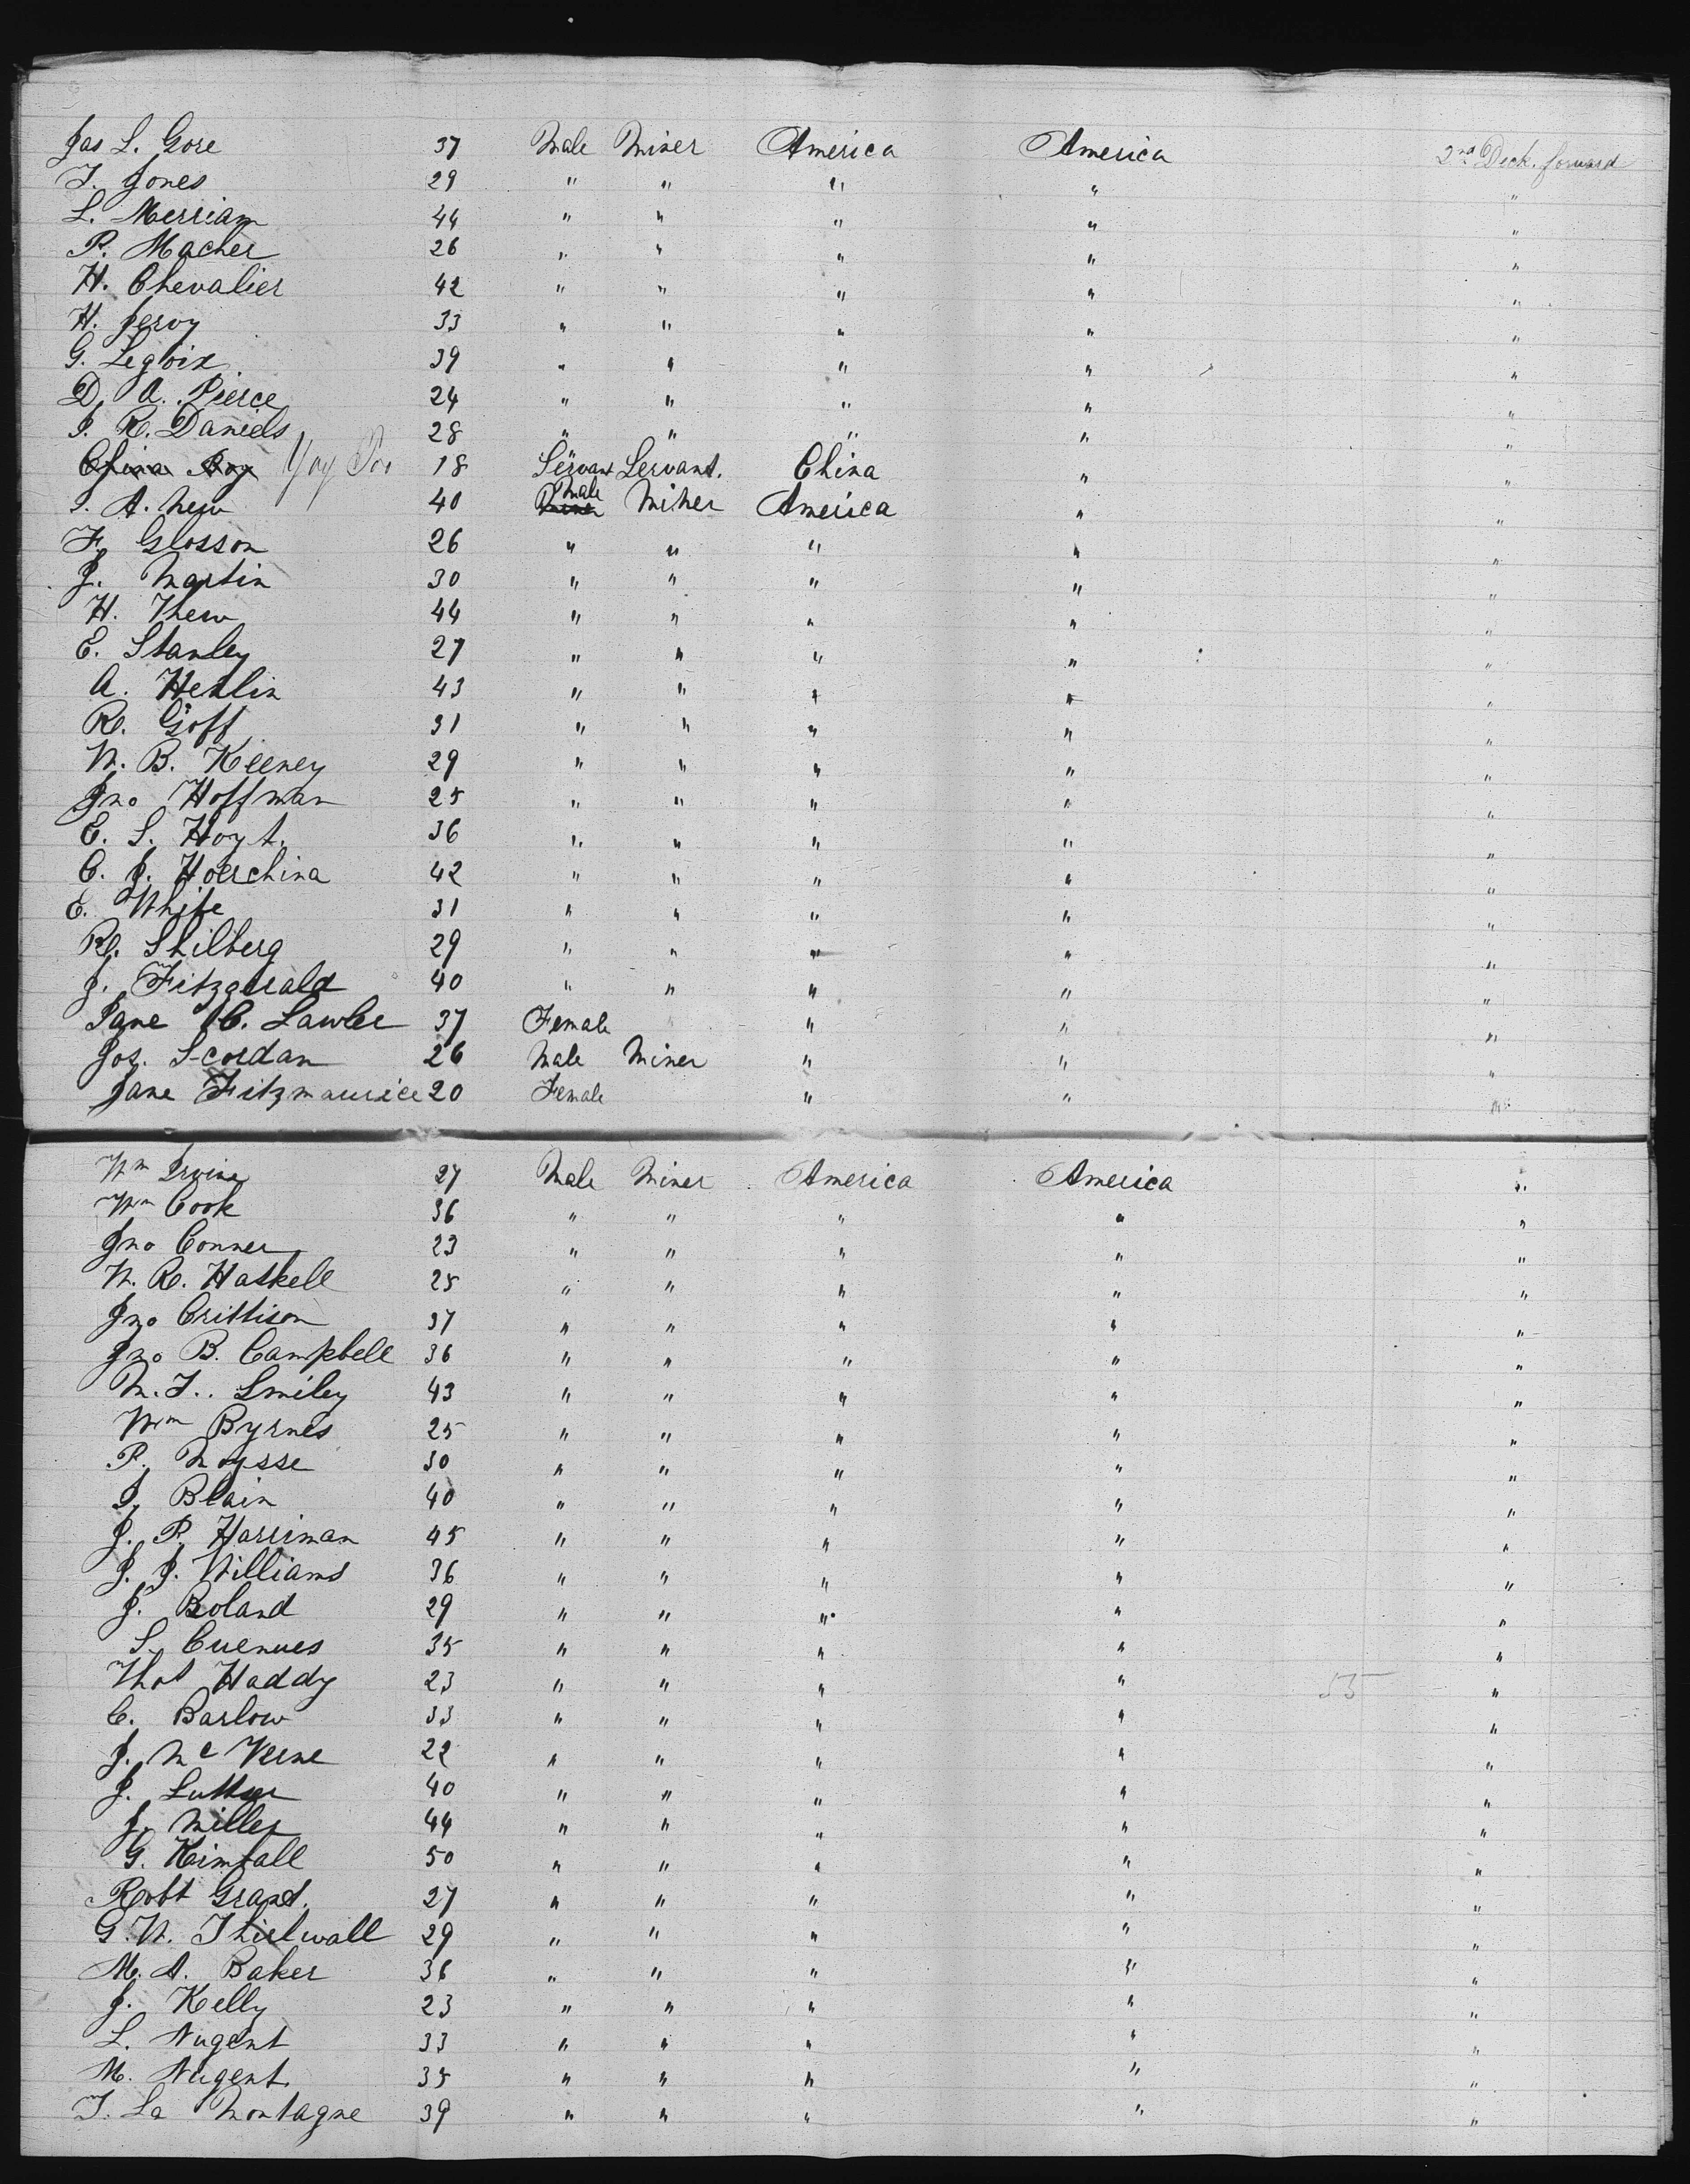 Jas L. Gore 37 Male Miner America America 2nd Deck. forward
T. Jones 29 " " " " "
L. Merriam 44 " " " " "
P. Macher 26 " " " " "
H. Chevalier 42 " " " " "
H. Jervy 33 " " " " "
G. Legoix 39 " " " " "
D. A. Pierce 24 " " " " "
J. R. Daniels 28 " " " " "
China Boy Yoy 18 Servant Servant. China " "
J. A. New 40 Male Miner America " "
F. Glosson 26 " " " " "
J. Martin 30 " " " " "
H. Thew 44 " " " " "
E. Stanley 27 " " " " "
A. Henlin 43 " " " " "
R. Goff 31 " " " " "
W. B. Keeney 29 " " " " "
Jno Hoffman 25 " " " " "
E. S. Hoyt. 36 " " " " "
C. J. Hoerchina 42 " " " " "
E. White 31 " " " " "
R. Shilberg 29 " " " " "
J. Fitzgerald 40 " " " " "
Jane C. Lawler 37 Female " " "
Jos. Scordan 26 Male Miner " " "
Jane Fitzmaurice 20 Female " " "
Wm Irvine 27 Male Miner America America "
Wm Cook 36 " " " " "
Jno Conner 23 " " " " "
W. R. Haskell 25 " " " " "
Jno Crittison 37 " " " " "
Jno B. Campbell 36 " " " " "
M. T. Smiley 43 " " " " "
Wm Byrnes 25 " " " " "
P. Moysse 30 " " " " "
J. Blain 40 " " " " "
J. P. Harriman 45 " " " " "
J. J. Williams 36 " " " " "
J. Boland 29 " " " " "
S. Cuenues 35 " " " " "
Thos Haddy 23 " " " " 55 "
C. Barlow 33 " " " " "
J. Mc Verne 22 " " " " "
J. Luther 40 " " " " "
J. Miller 44 " " " " "
G. Kimball 50 " " " " "
Robt Grant. 27 " " " " "
G. W. Thirlwall 29 " " " " "
M. A. Baker 36 " " " " "
J. Kelly 23 " " " " "
L. Nugent 33 " " " " "
M. Nugent. 35 " " " " "
T. La Montagne 39 " " " " "